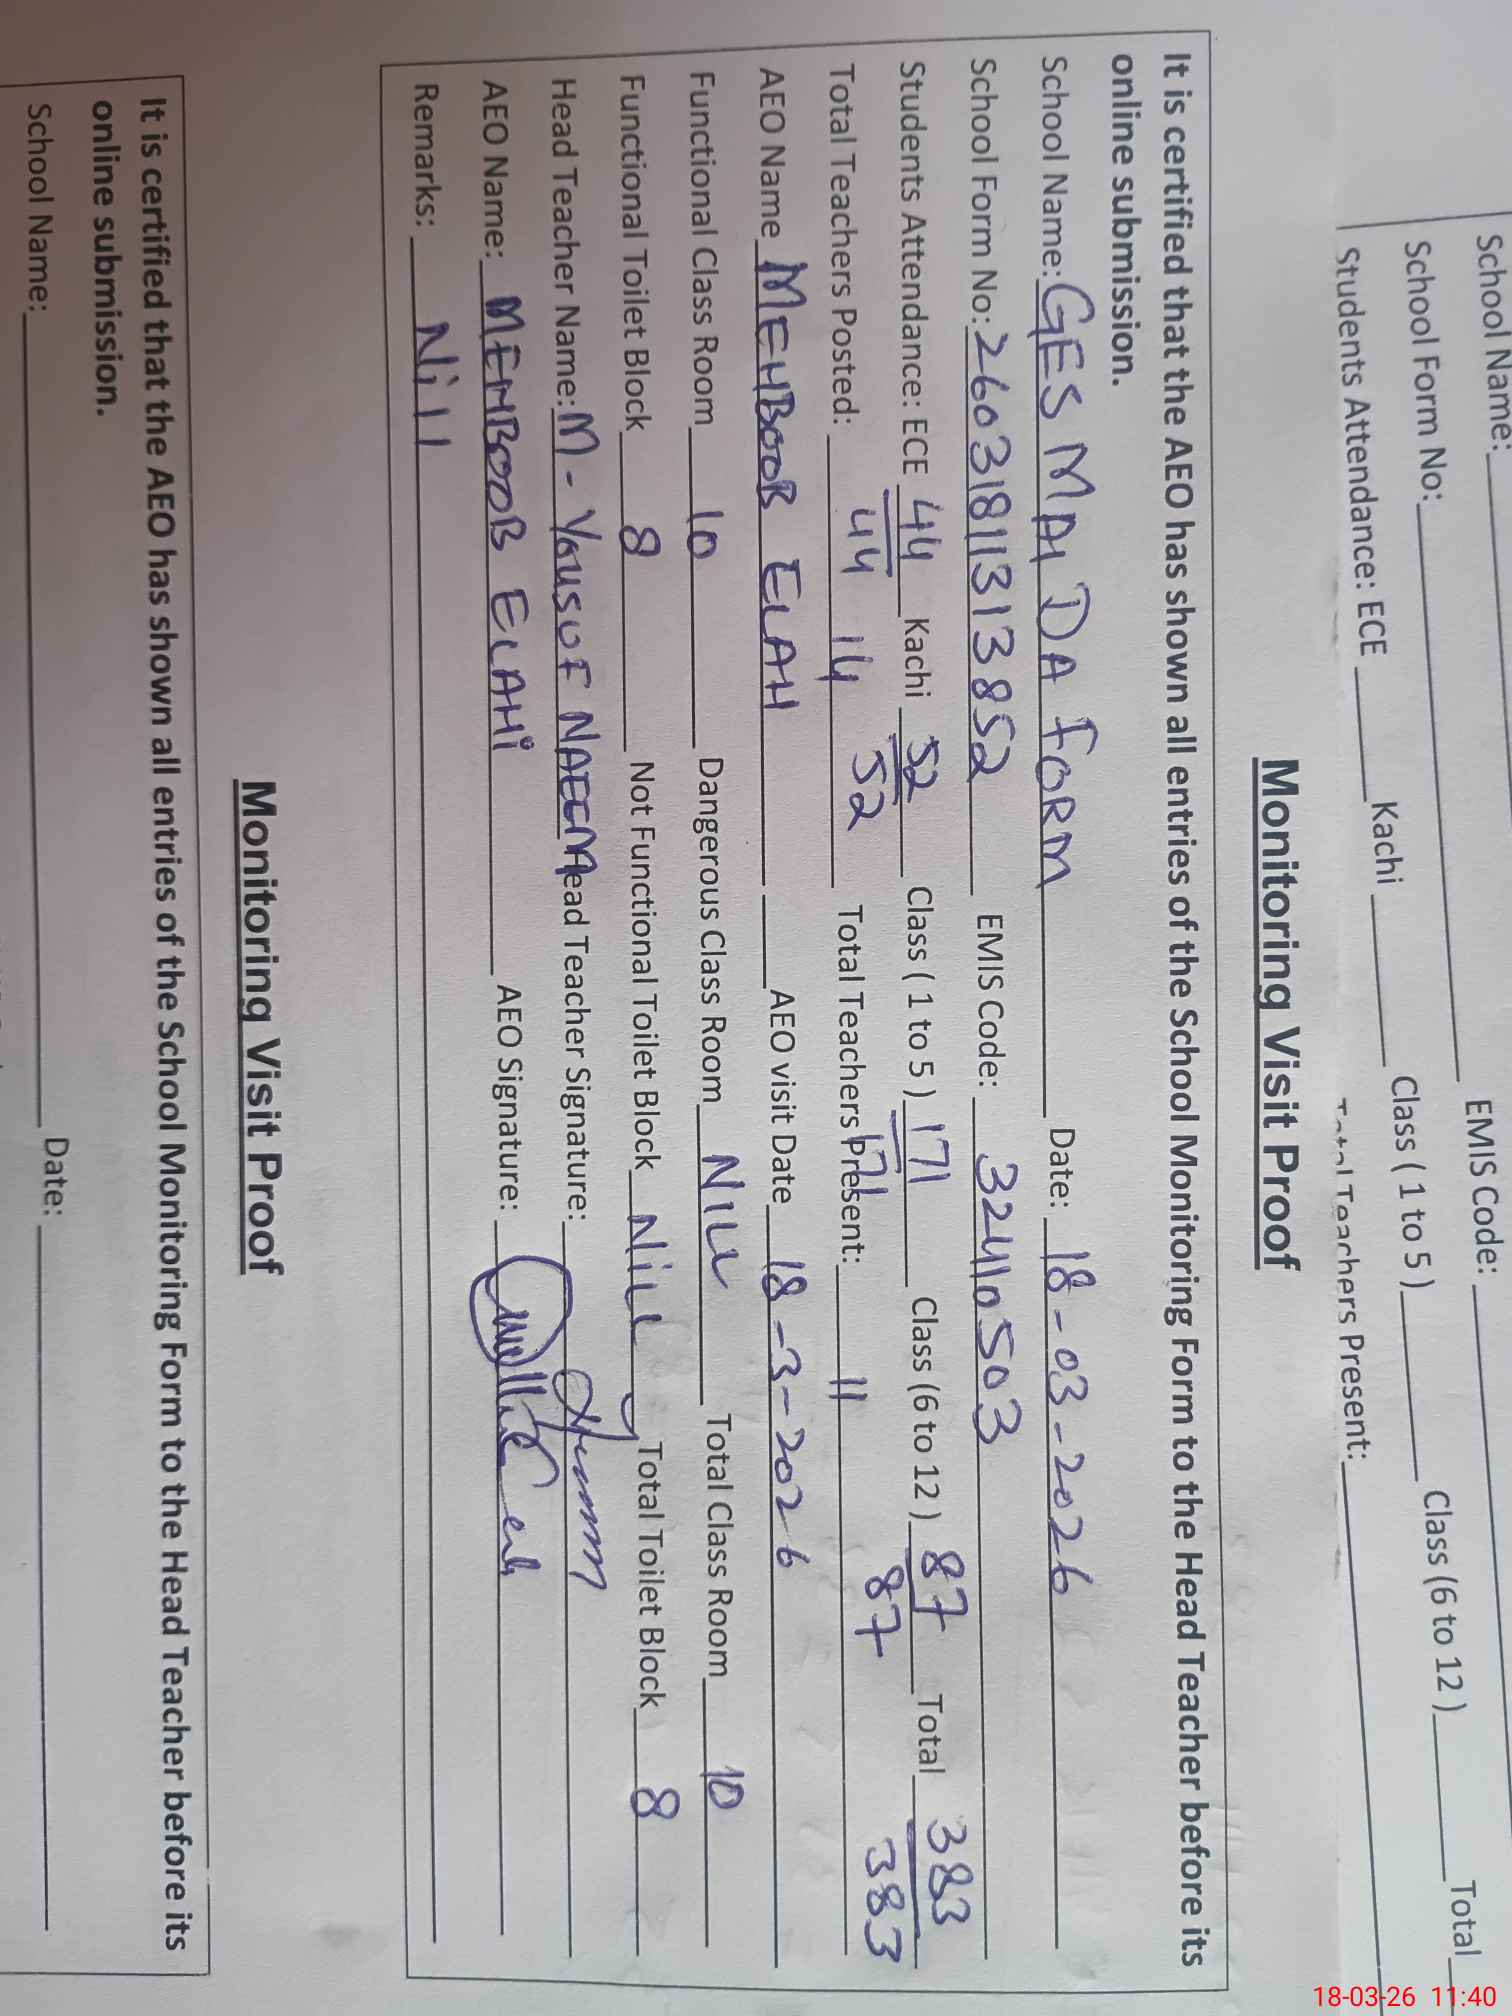 School Name:
EMIS Code:
School Form No:
Students Attendance: ECE Kachi Class ( 1 to 5 ) Class (6 to 12 ) Total
Total Teachers Present:
Monitoring Visit Proof
It is certified that the AEO has shown all entries of the School Monitoring Form to the Head Teacher before its
online submission.
School Name: GES MAI DA FORM Date: 18-03-2026
School Form No: 26031811313852 EMIS Code: 32410503
Students Attendance: ECE 44 Kachi 52 Class ( 1 to 5 ) 171 Class (6 to 12 ) 87 Total 383
44 52 171 87 383
Total Teachers Posted: 14 Total Teachers Present: 11
AEO Name MEHBOOB ELAH AEO visit Date 18-3-2026
Functional Class Room 10 Dangerous Class Room NILL Total Class Room 10
Functional Toilet Block 8 Not Functional Toilet Block NILL Total Toilet Block 8
Head Teacher Name: M-YOUSUF NAEEM Head Teacher Signature:
AEO Name: MEHBOOB ELAHI AEO Signature:
Remarks: Nill
Monitoring Visit Proof
It is certified that the AEO has shown all entries of the School Monitoring Form to the Head Teacher before its
online submission.
School Name: Date:
18-03-26 11:40